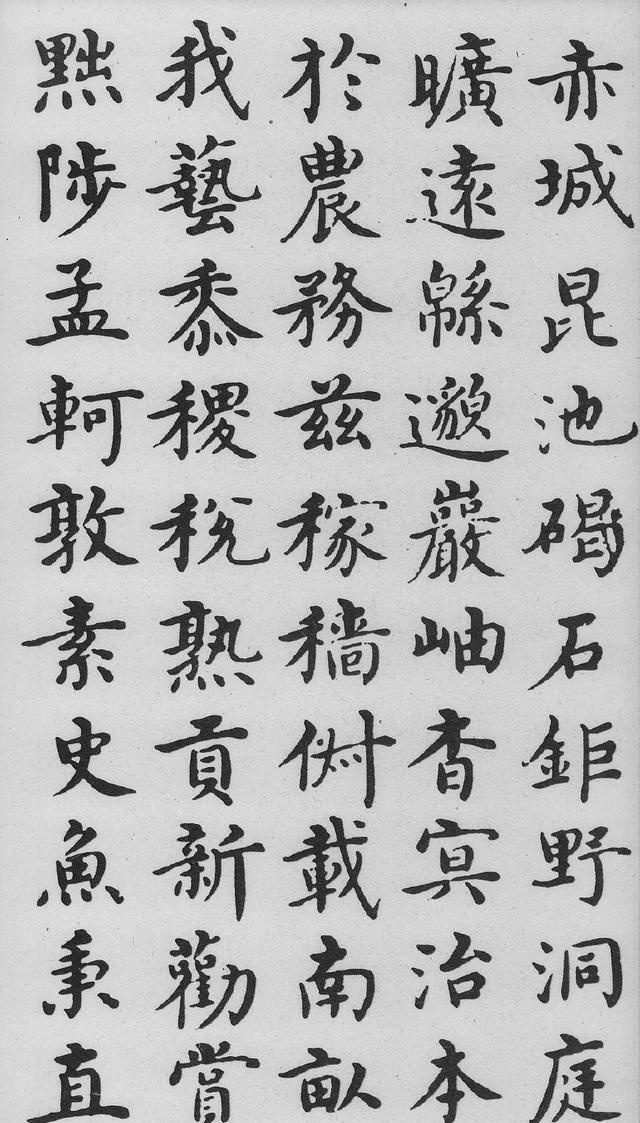 赤城昆池碣石鉅野洞庭
曠遠緜邈巖岫杳冥治本
於農務茲稼穡俶載南畝
我藝黍稷稅熟貢新勸賞
黜陟孟軻敦素史魚秉直